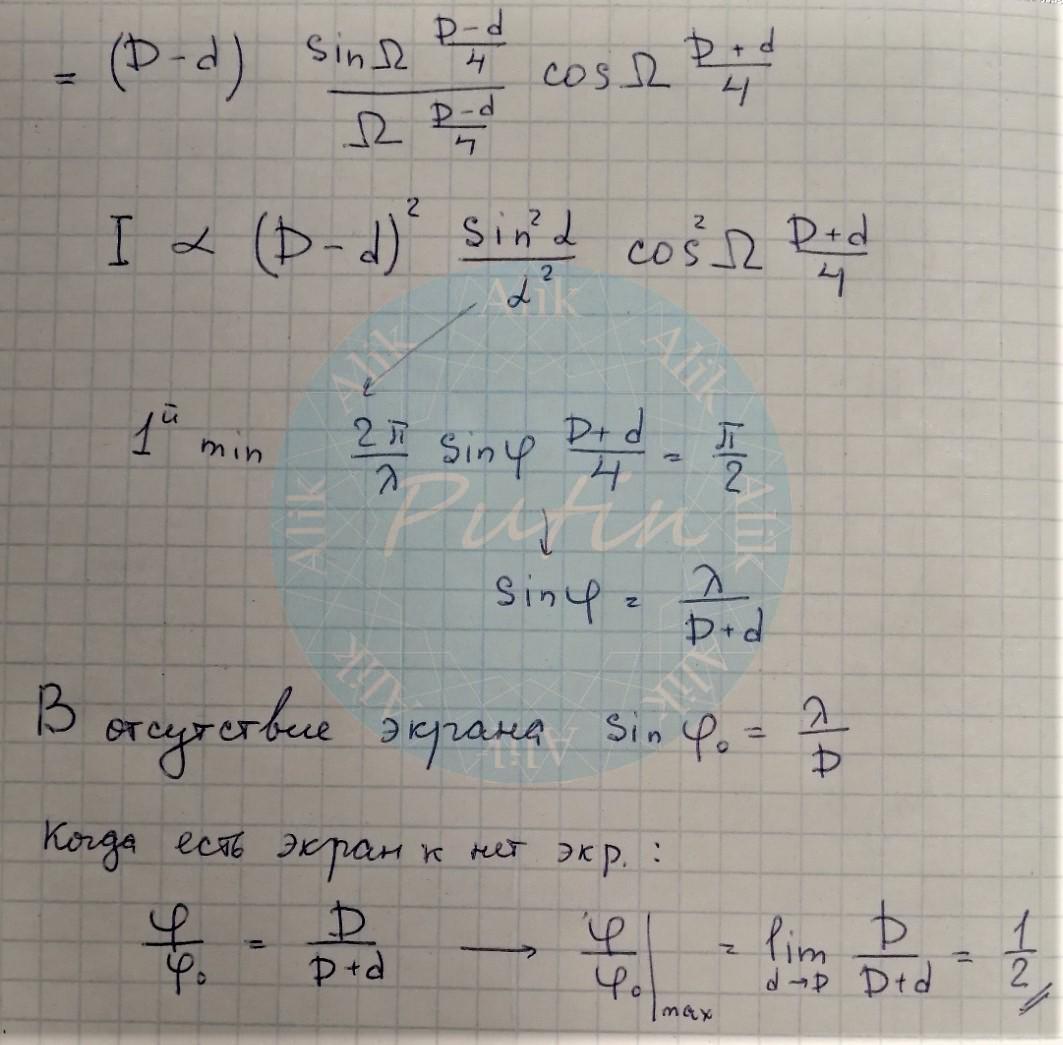 = (D-d) sinΩ (D-d)/4 / Ω (D-d)/4 cosΩ (D+d)/4
I ∝ (D-d)² sin²α/α² cos²Ω (D+d)/4
1й min 2π/λ sinφ (D+d)/4 = π/2
↓
sinφ = λ/(D+d)
В отсутствие экрана sinφ₀ = λ/D
Когда есть экран к нет экр. :
φ/φ₀ = D/(D+d) → φ/φ₀|max = lim d→D D/(D+d) = 1/2
Alik
Alik
Alik
Alik
Alik
Putin
Alik
Alik
Alik